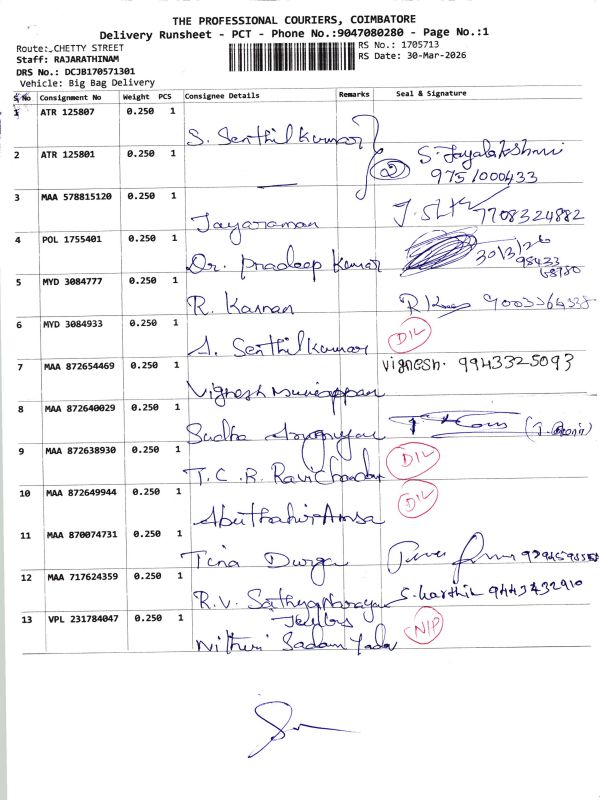 THE PROFESSIONAL COURIERS, COIMBATORE
Delivery Runsheet - PCT - Phone No.:9047080280 - Page No.:1
Route: CHETTY STREET
RS No.: 1705713
Staff: RAJARATHINAM
RS Date: 30-Mar-2026
DRS No.: DCJB170571301
Vehicle: Big Bag Delivery
S No Consignment No Weight PCS Consignee Details Remarks Seal & Signature
1 ATR 125807 0.250 1 S. Senthil Kumar
2 ATR 125801 0.250 1 — (2) S. Jayalakshmi
9751000433
3 MAA 578815120 0.250 1 Jayaraman 7708324882
4 POL 1755401 0.250 1 Dr. Pradeep Kumar 30/3/26
98433
68780
5 MYD 3084777 0.250 1 R. Kannan
6 MYD 3084933 0.250 1 A. Senthilkumar D/L
7 MAA 872654469 0.250 1 Vignesh Vignesh. 9943325093
8 MAA 872640029 0.250 1 Sudha
9 MAA 872638930 0.250 1 T.C.R. Ravichandar D/L
10 MAA 872649944 0.250 1 D/L
11 MAA 870074731 0.250 1 Tina Durga
12 MAA 717624359 0.250 1 R.V. Sathyanarayan S. Karthik 9443432910
13 VPL 231784047 0.250 1 Sadam Yadav N/P